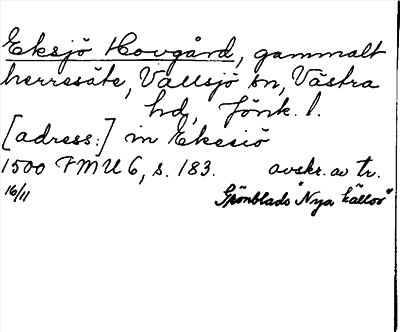 Eksjö Hovgård, gammalt
herresäte, Vallsjö sn, Västra
hd, Jönk. l.
[adress:] in Ekesiö
1500 FMU 6, s. 183. avskr. av tr.
16/11 Grönblads "Nya källor"